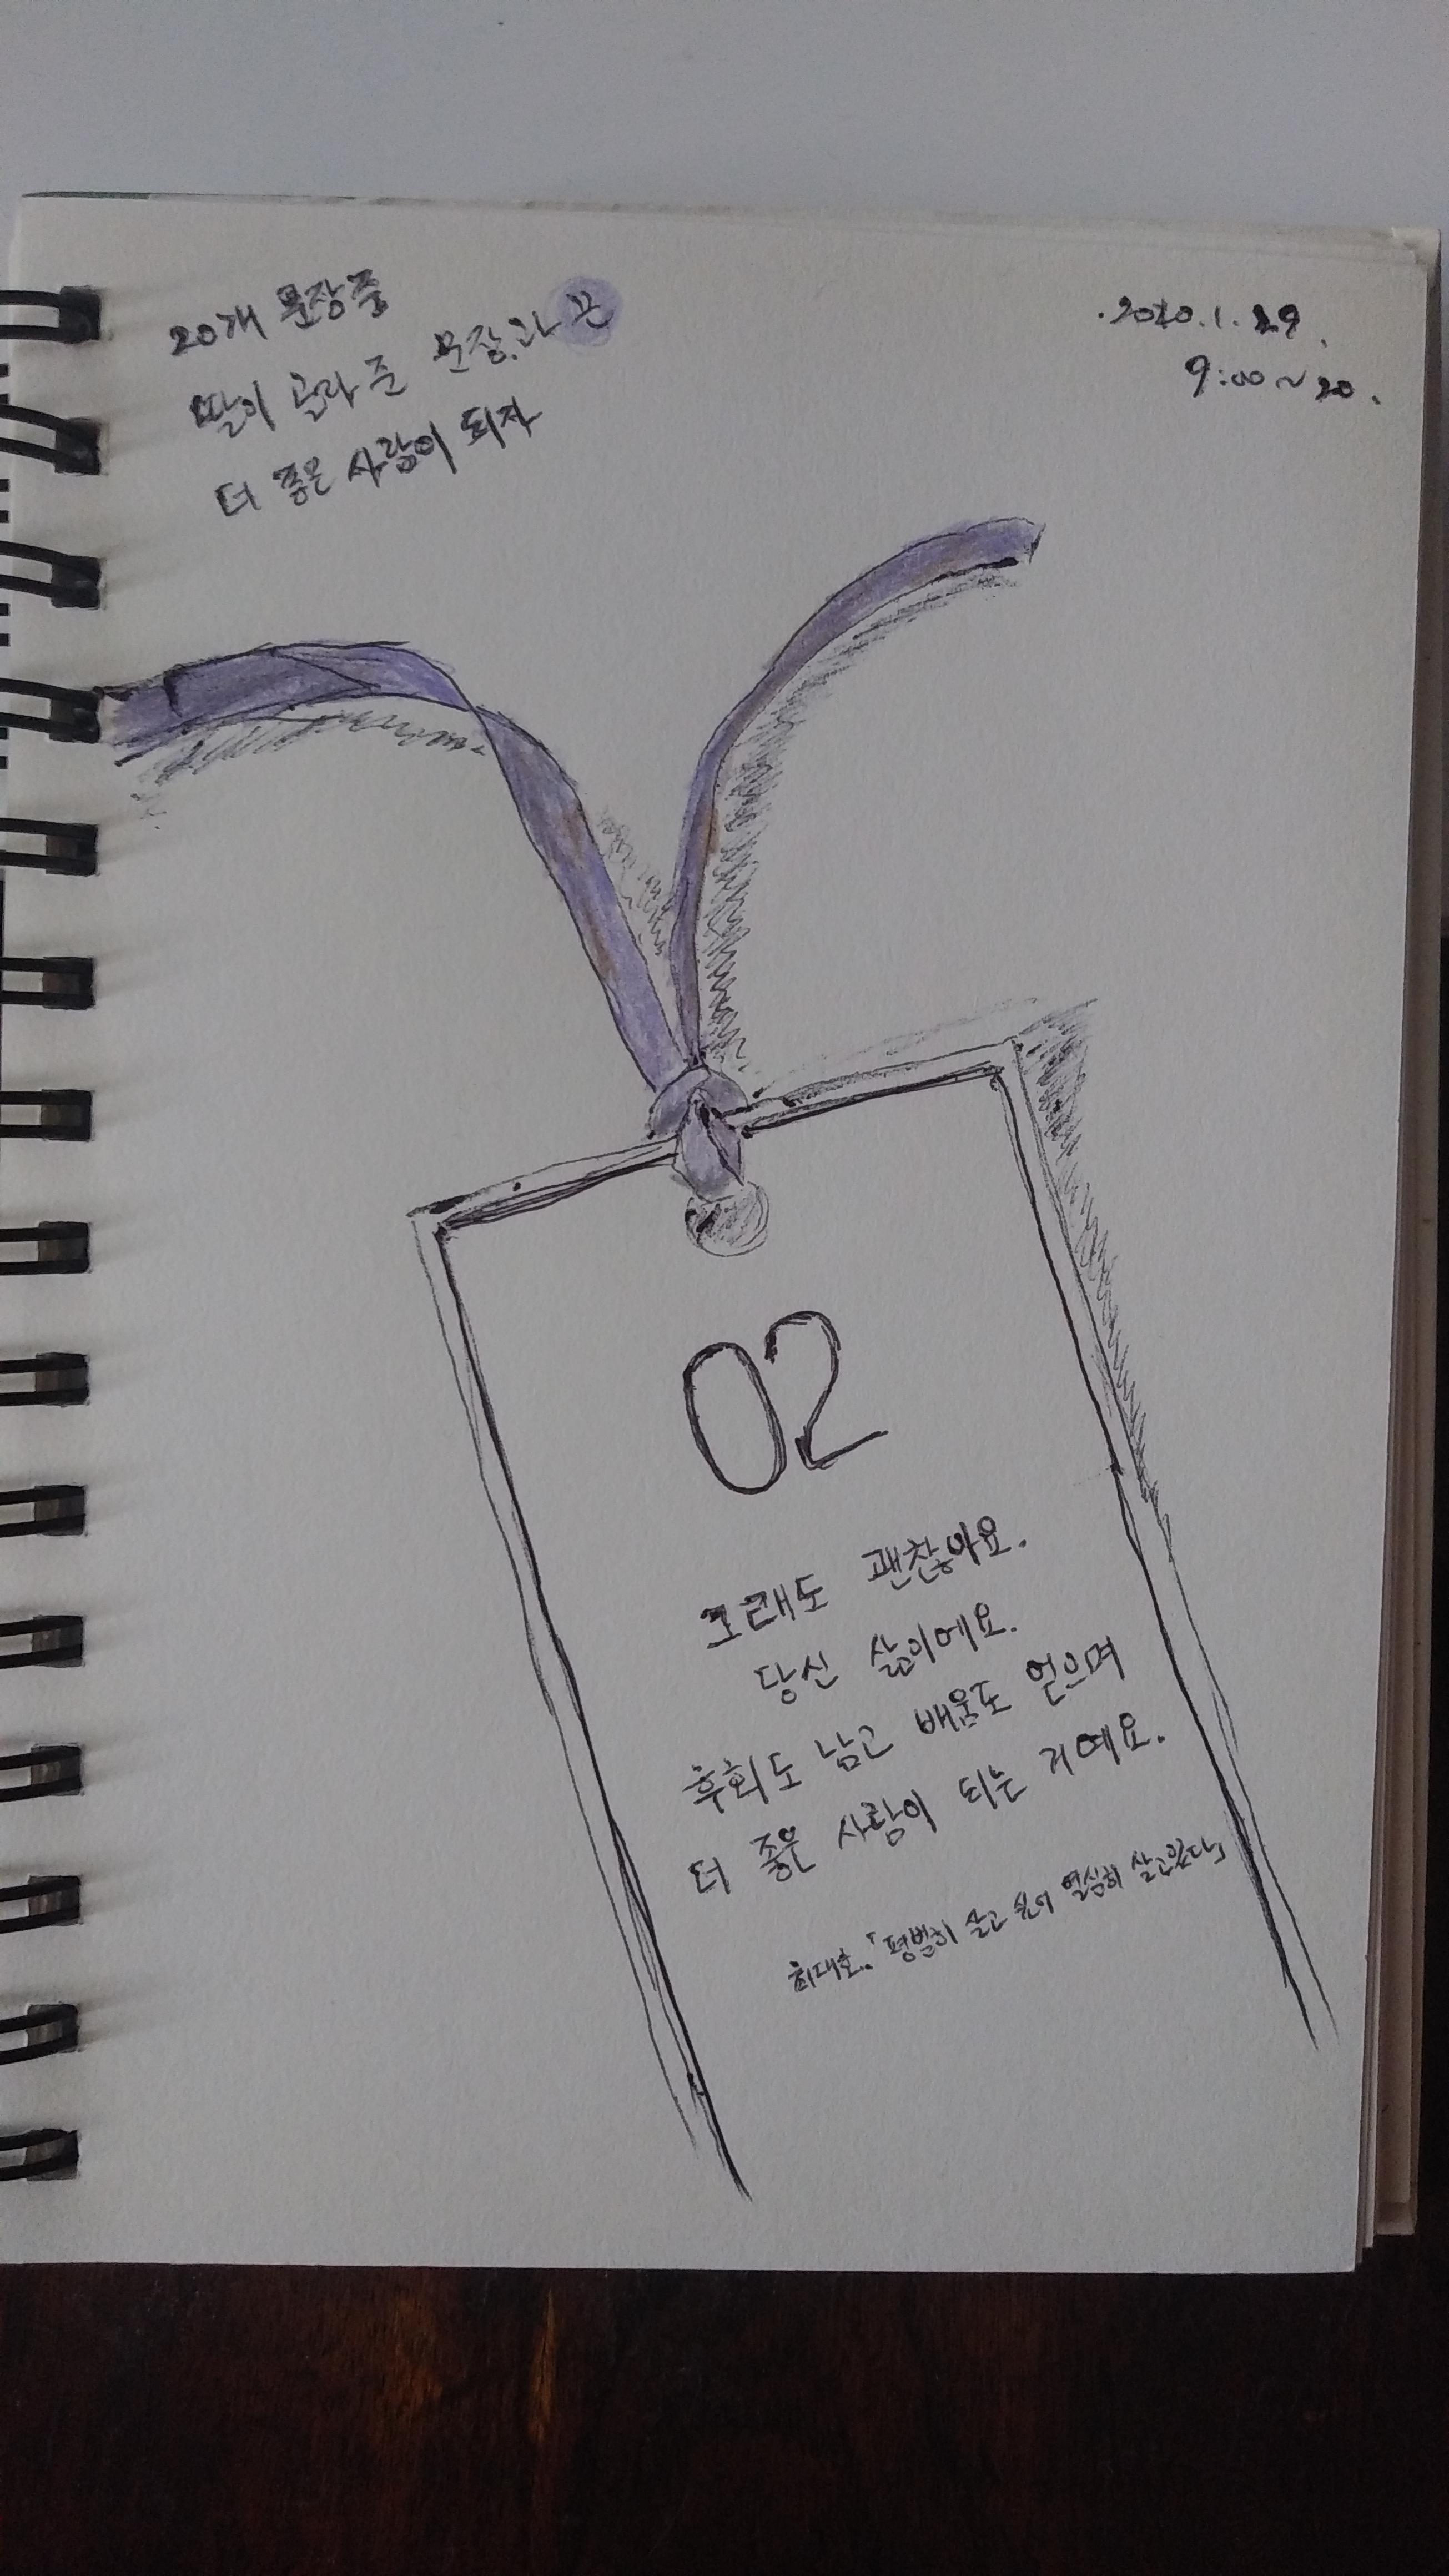 20개 문장중
딸이 골라준 문장과 끈
더 좋은 사람이 되자
.2020.1.29.
9:00~20.
02
그래도 괜찮아요.
당신 삶이에요.
후회도 남고 배움도 얻으며
더 좋은 사람이 되는 거예요.
최대호.「평범히 살고 싶어 열심히 살고있다」